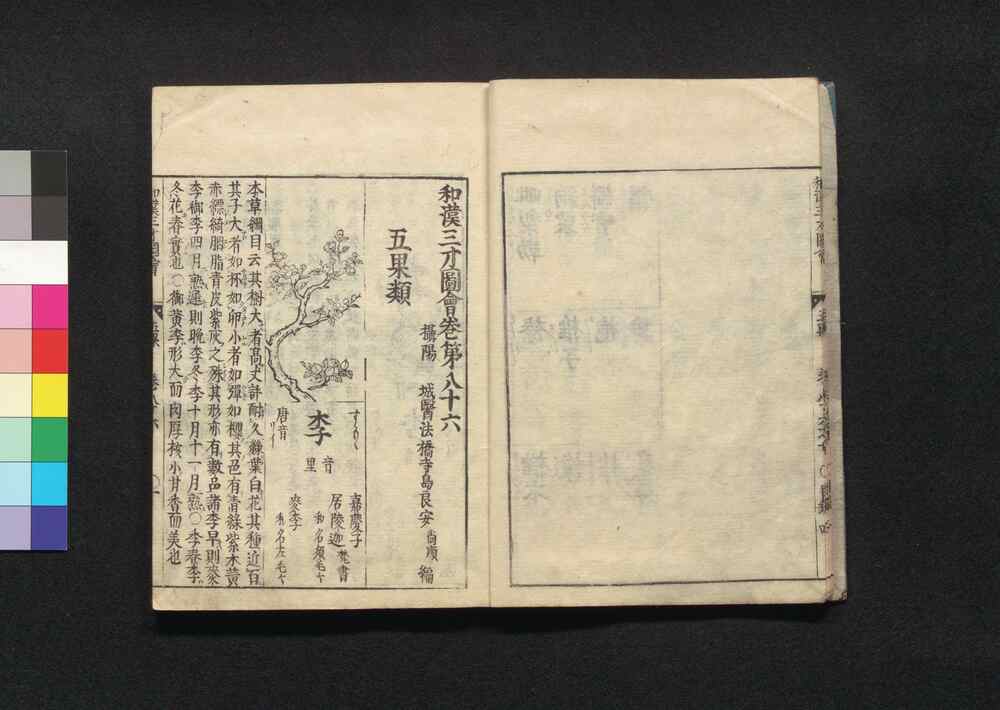 和漢三才圖會卷第八十六
攝陽 城醫法橋寺島良安尚順編
五果類
すもゝ
李
音里
唐音リイ
嘉慶子
居陵迦 梵書
和名須毛々
麥李
和名左毛々
本草綱目云其樹大者高丈許耐久綠葉白花其種近百
其子大者如杯如卵小者如彈如櫻其色有青綠紫朱黃
赤縹綺胭脂青皮紫灰之殊其形亦有數品諸李早則麥
李御李四月熟遲則晚李冬李十月十一月熟○李春李
冬花春實也○御黃李形大而肉厚核小甘香而美也